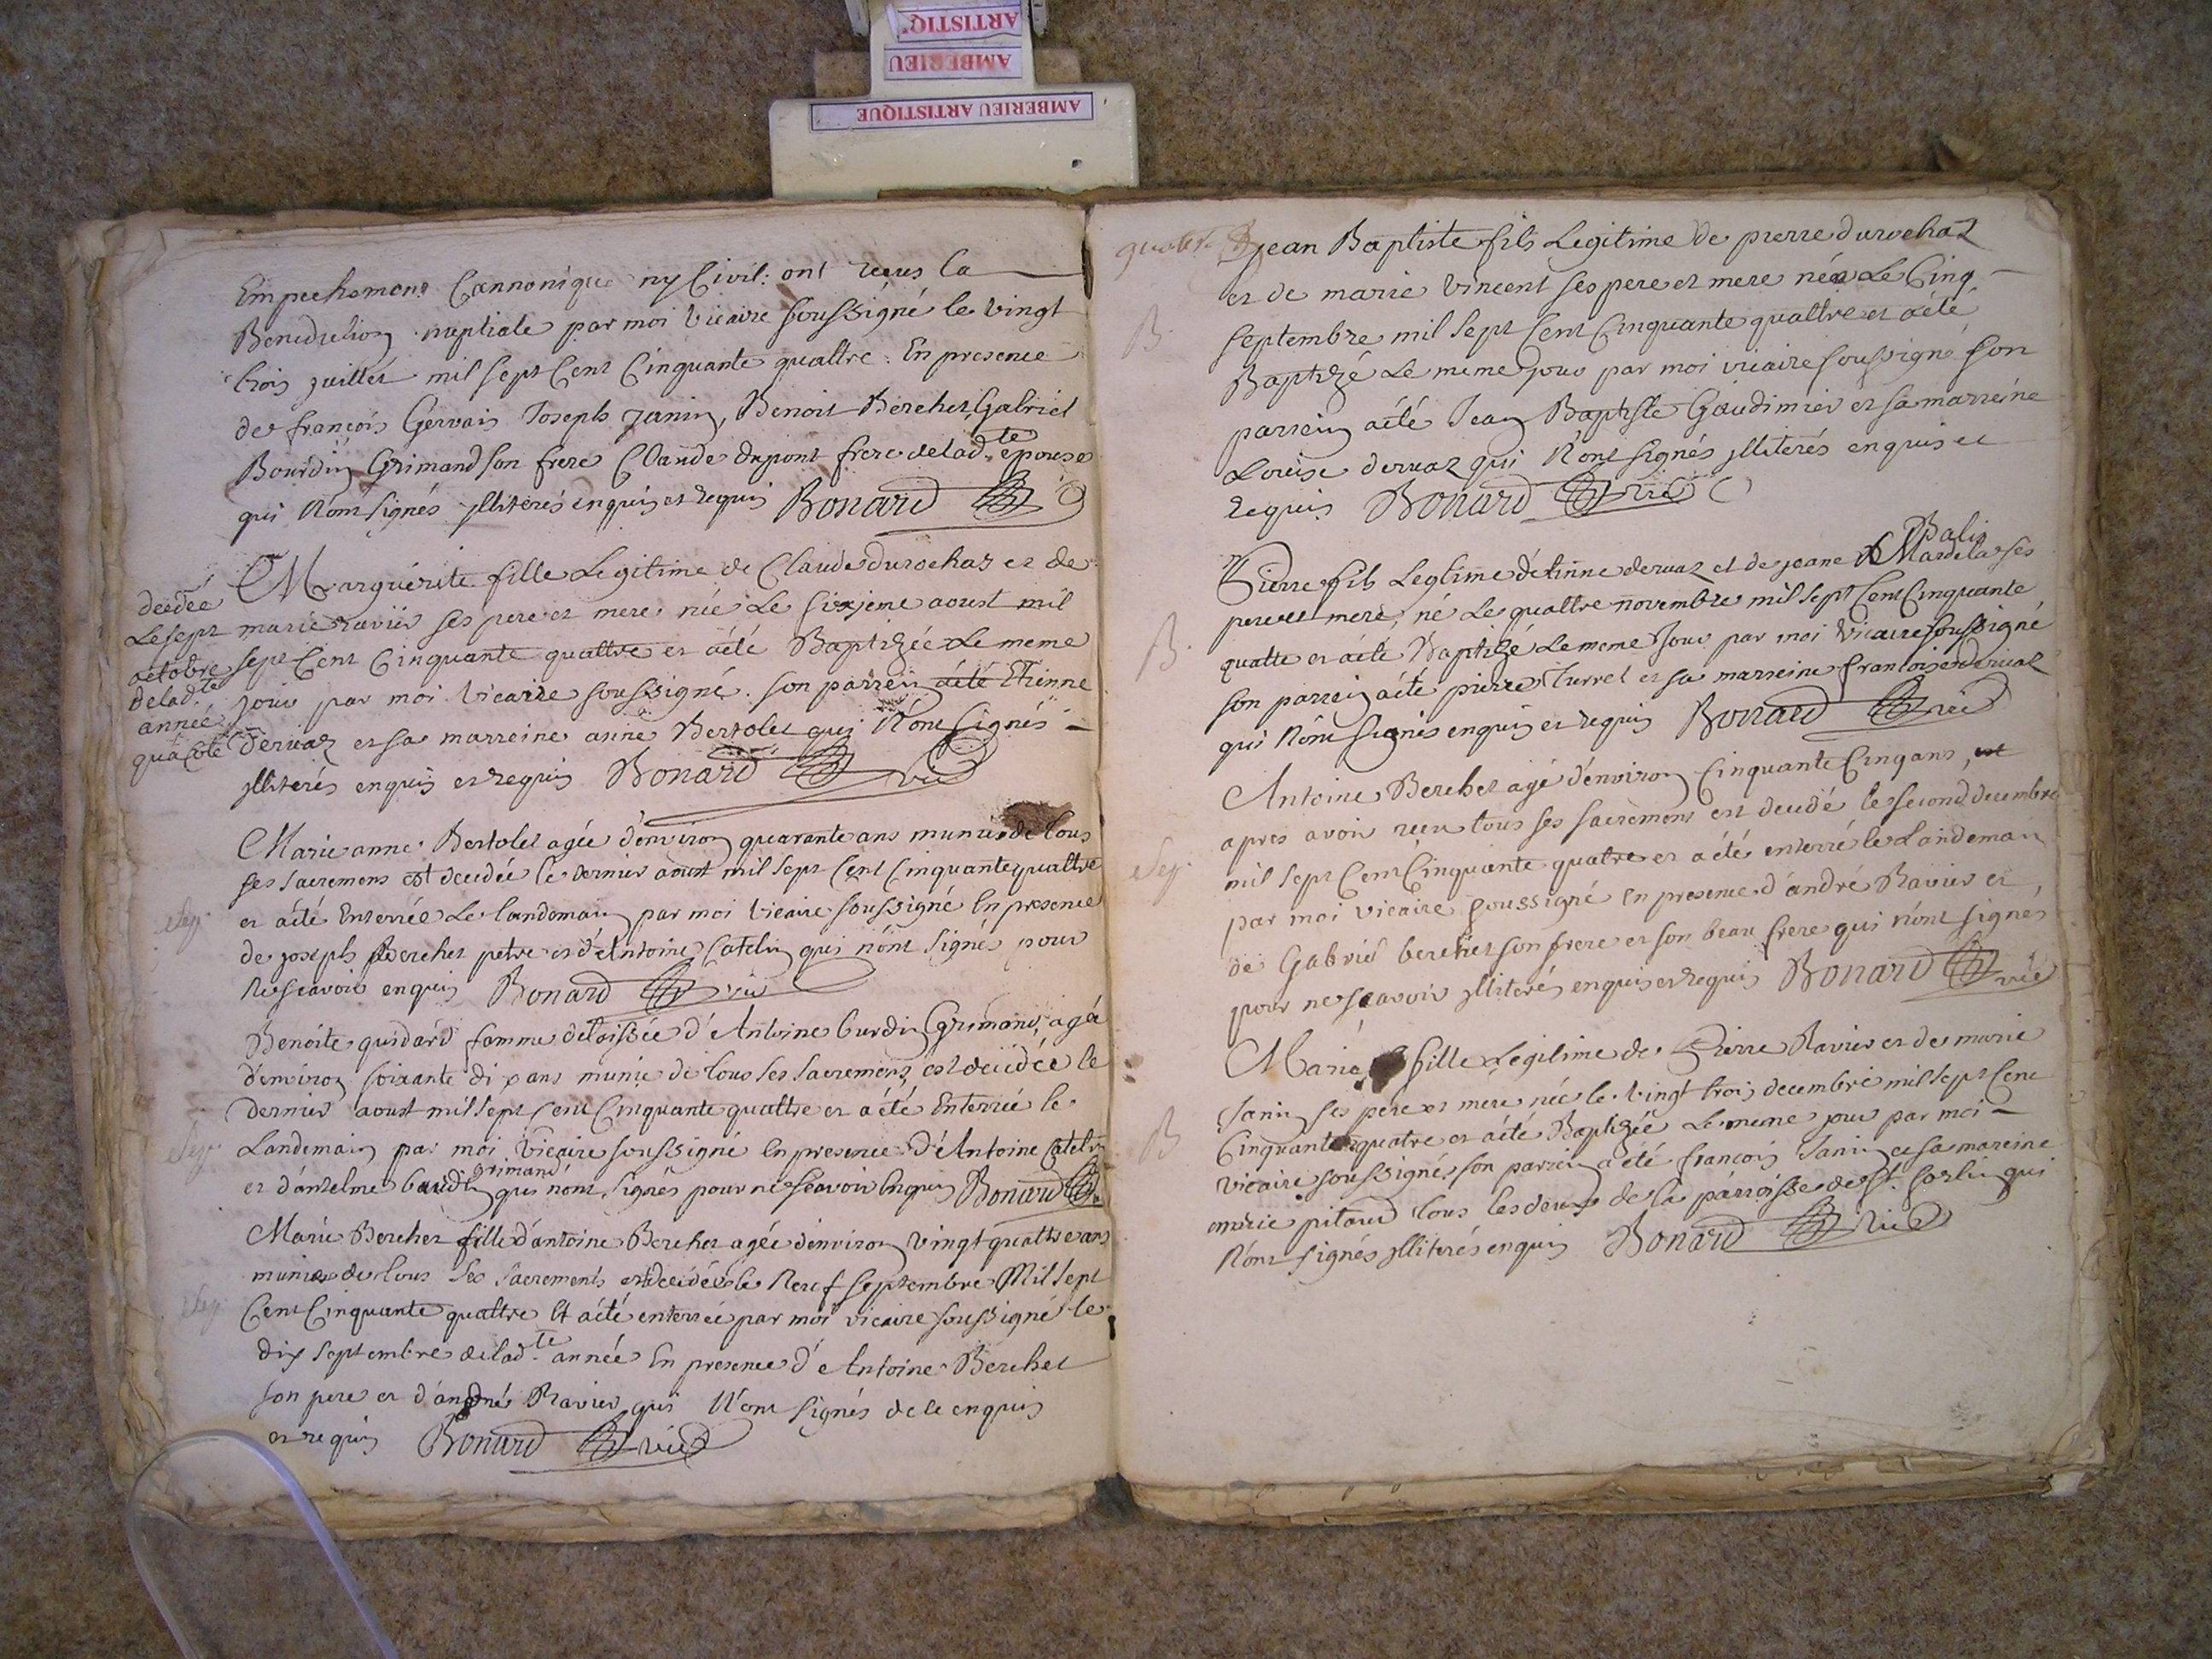 ARTISTIQ
AMBERIEU
AMBERIEU ARTISTIQUE
Empechemens Cannonique ny Civil: ont reçus la
Benediction nuptiale par moi vicaire soussigné le vingt
trois juillet mil sept Cent Cinquante quattre. En presence
de françois Gervais Joseph Janin, Benoit Bercher Gabriel
Bourdin Grimand son frere Claude dupont frere de lad.te epouse
qui N'ont signés jlliterés enquis et requis Bonard
Marguérite fille Legitime de Claude durochaz et de
marie ravier ses pere et mere née Le sixjeme aoust mil
sept Cent Cinquante quattre et aété Baptizée Le meme
jour par moi vicaire soussigné. son parrein aété Etienne
dervaz et sa marreine anne Bertolet qui N'ont signés
jlliterés enquis et requis Bonard vic
decedée
Le sept
octobre
de lad.te
année
qu'a Coté
Marie anne Bertolet agée d'environ quarante ans munie de tous
ses sacremens est decedée le dernier aoust mil sept Cent Cinquante quattre
et aété Enterrée Le landemain par moi vicaire soussigné En presence
de joseph Bercher petre et d'Antoine Catelin qui n'ont signés pour
Ne sçavoir enquis Bonard vic
Sep.
Benoite quidard famme delaissée d'Antoine burdin Grimand, agée
d'environ soixante dix ans munie de tous ses sacremens est decedée le
dernier aoust mil sept Cent Cinquante quattre et aété Enterrée le
Landemain par moi vicaire soussigné En presence d'Antoine Catelin
et d'antelme burdin grimand qui n'ont signés pour ne sçavoir Enquis Bonard
Sep.
Marie Bercher fille d'antoine Bercher agée d'environ vingt quattre ans
munie de tous ses sacrements est decedée le Neuf septembre Mil sept
Cent Cinquante quattre Et aété enterrée par moi vicaire soussigné le
dix septembre de lad.te année En presence d'Antoine Bercher
son pere et d'andré Ravier qui N'ont signés de ce enquis
et requis Bonard vic
Sep.
jean Baptiste fils Legitime de pierre durochaz
et de marie vincent ses pere et mere née Le Cinq
septembre mil sept Cent Cinquante quattre et aété
Baptizé Le meme jour par moi vicaire soussigné son
parrein aété Jean Baptiste Gaudimier et sa marreine
Louise dervaz qui N'ont signés jlliterés enquis et
requis Bonard vic
B.
Pierre fils Legtime d'étinne dervaz et de jeane Balin Mardela ses
pere et mere, né Le quattre novembre mil sept Cent Cinquante
quatte et aété Baptizé Le meme Jour par moi vicaire soussigné
son parrein aété pierre Turrel et sa marreine francoise dervaz
qui N'ont signés enquis et requis Bonard vic
B.
Antoine Bercher agé d'environ Cinquante Cinq ans, est
apres avoir reçu tous ses sacremens est decedé le second decembre
mil sept Cent Cinquante quatre et a été enterré le Landemain
par moi vicaire soussigné En presence d'andré Ravier et,
de Gabriel bercher son frere et son beau frere qui n'ont signés
pour ne sçavoir jlliterés enquis et requis Bonard vic
Sep.
Marie fille Legitime de Pierre Ravier et de marie
Janin ses pere et mere née le vingt trois decembre mil sept Cent
Cinquante quatre et aété Baptizée Le meme jour par moi
vicaire soussigné, son parrein a été françois Janin et sa mareine
marie pitaud tous les deux de la parroisse de st. sorlin qui
N'ont signés jlliterés enquis Bonard vic
B